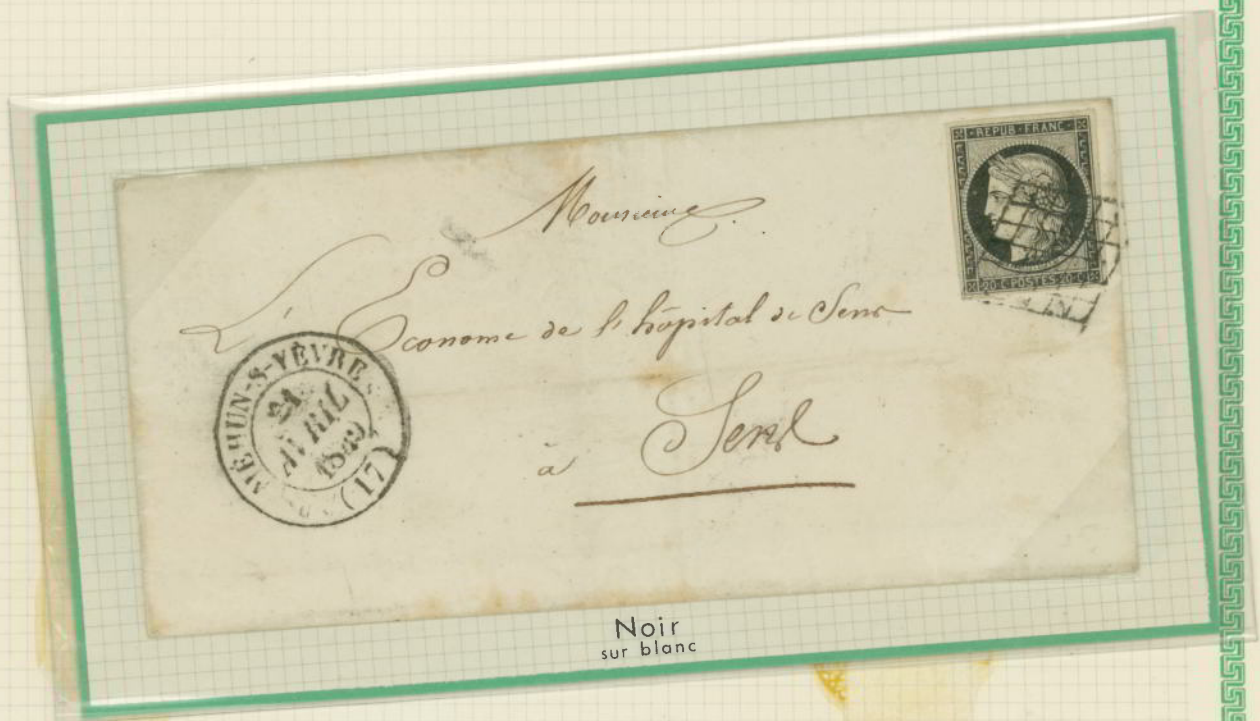 REPUB·FRANC·
20·C·POSTES·20·C
Monsieur
L'Econome de l'hôpital de Sens
à Sens
MEHUN-S-YÈVRE
21
AVRIL
1849
(17)
Noir
sur blanc